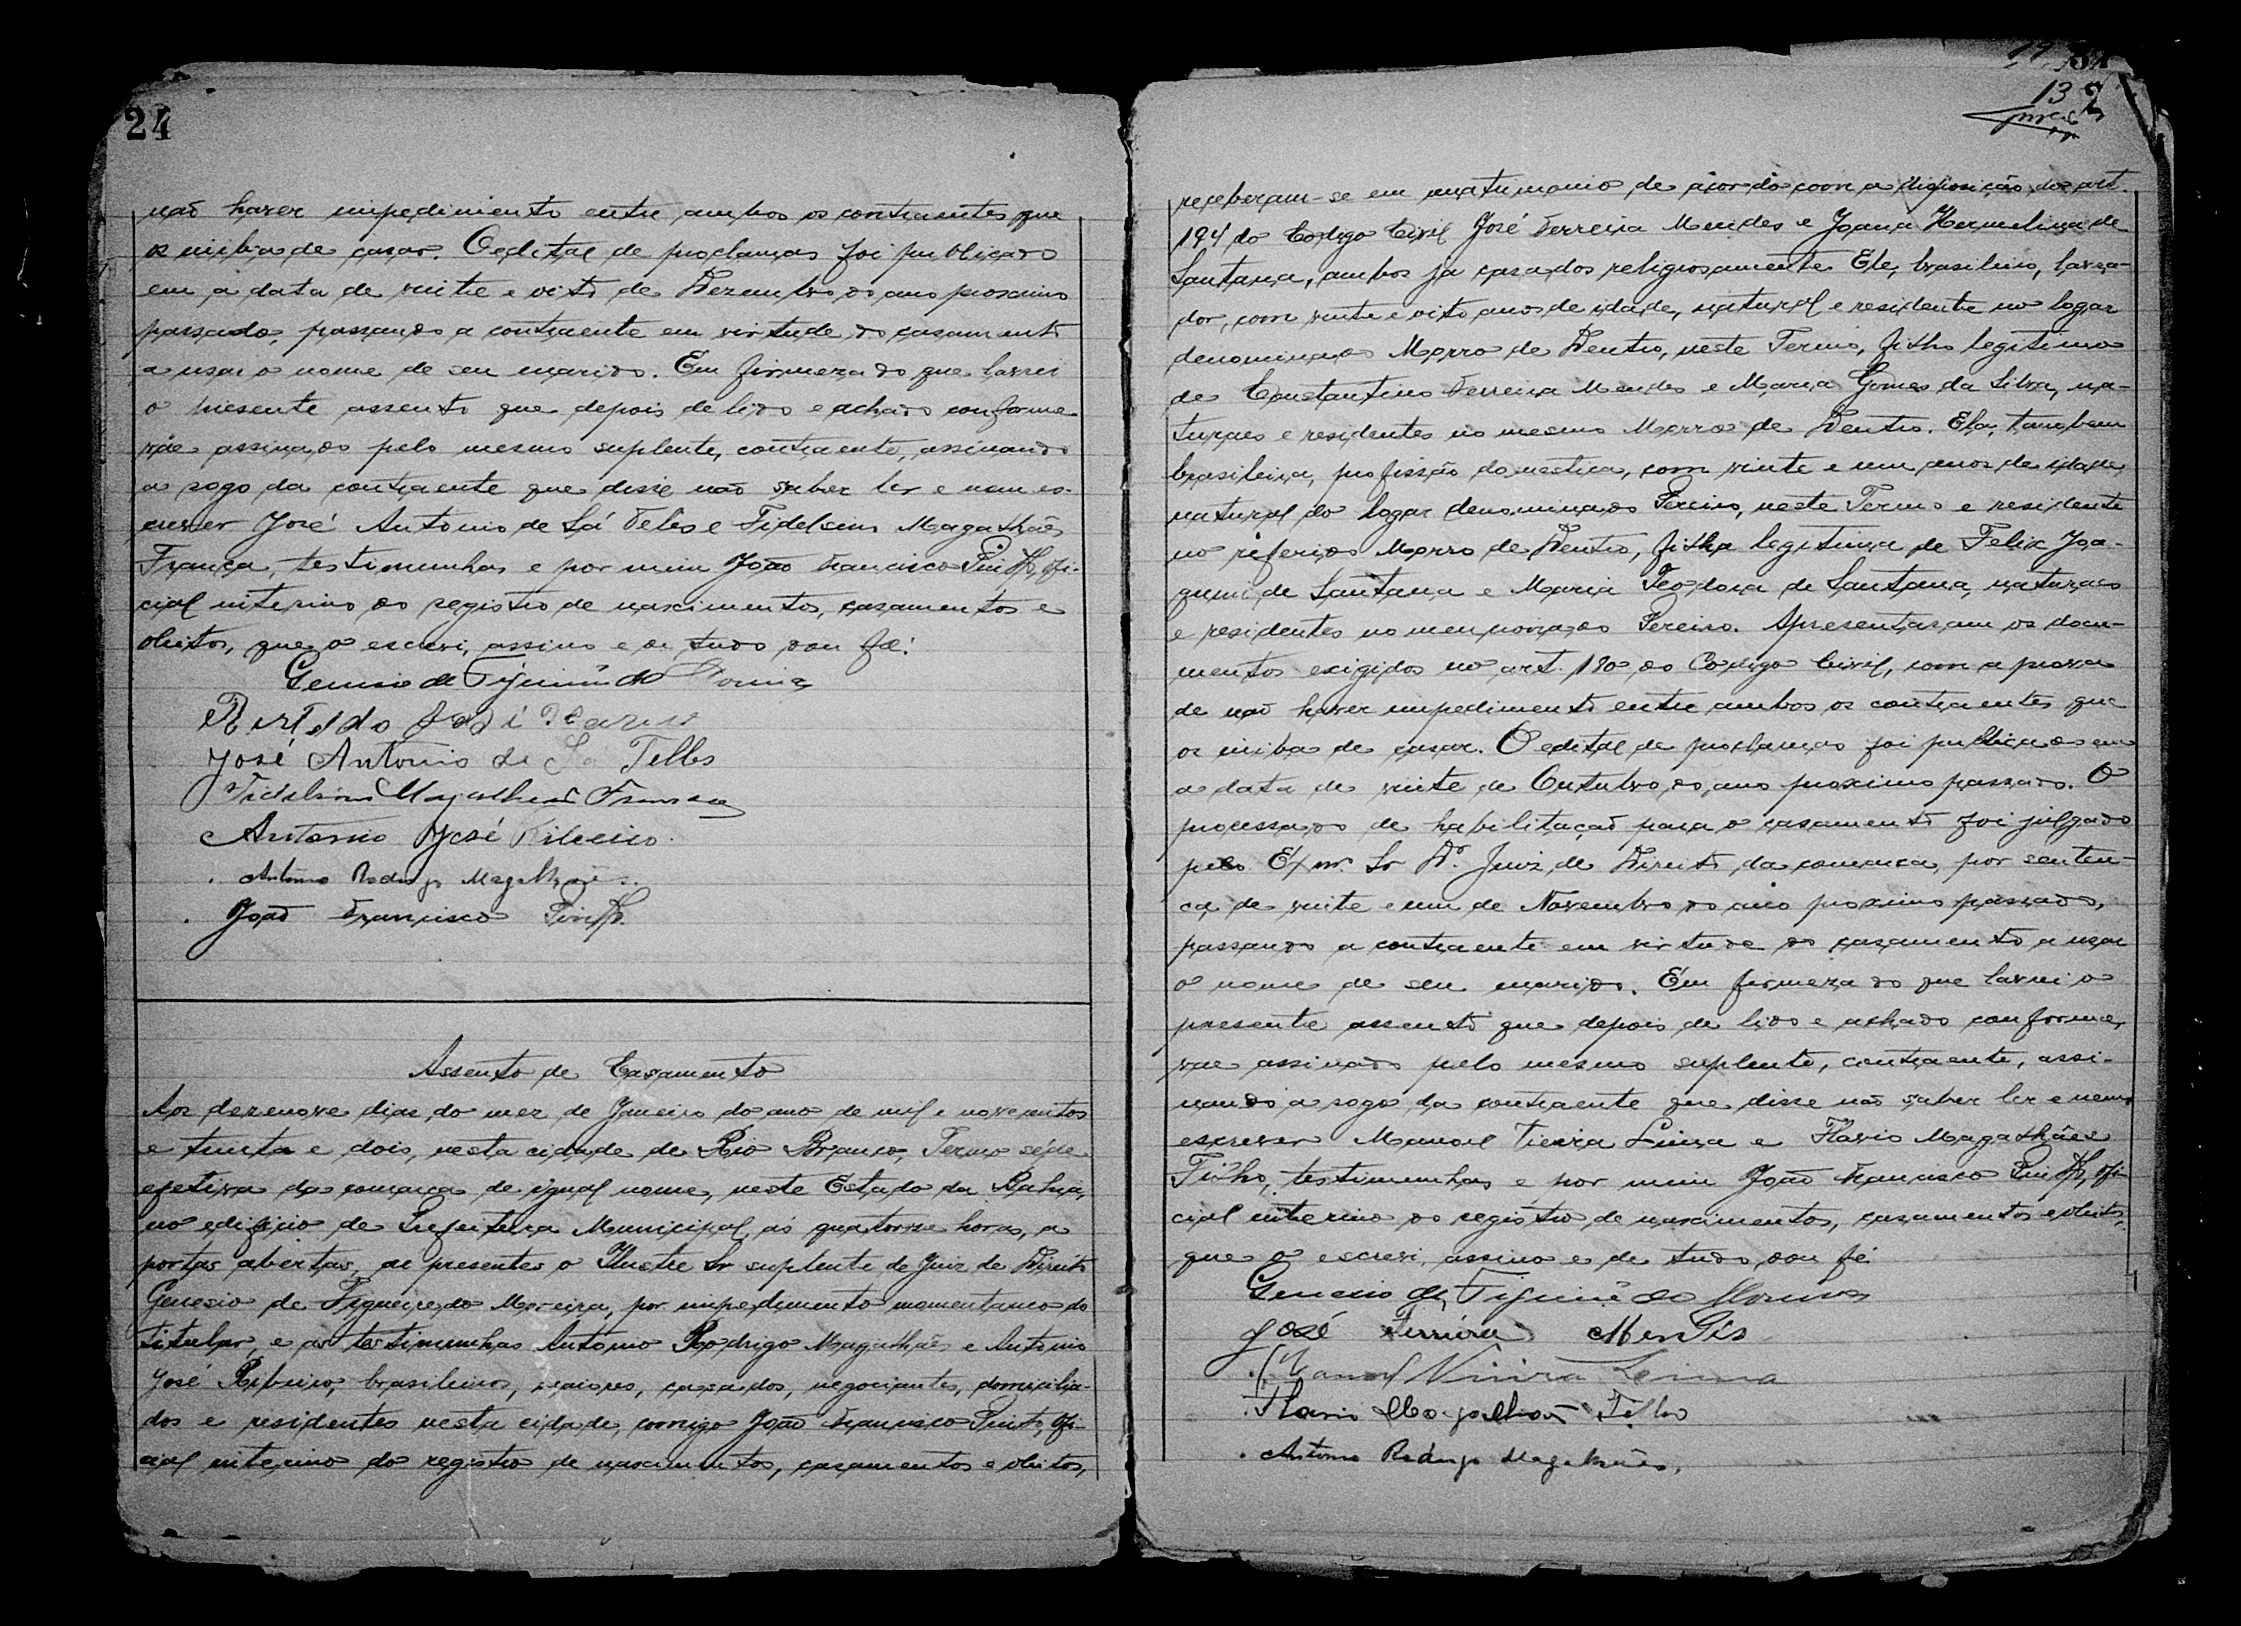 24
não haver impedimento entre ambos os contraentes que
os iniba de casar. O edital de proclamas foi publicado
em a data de vinte e oito de Dezembro do ano proximo
passado, passando a contraente em virtude do casamento
a usar o nome de seu marido. Em firmeza do que lavrei
o presente assento que depois de lido e achado conforme
vae assinado pelo mesmo suplente, contraente, assinando
a rogo da contraente que disse não saber ler e nem es-
crever José Antonio de Sá Teles e Fidelsino Magalhães
França, testimunhas e por mim João Francisco Pinto, ofi-
cial interino do registro de nascimentos, casamentos e
obitos, que o escrevi, assino e de tudo dou fé.
Genesio de Figueirêdo Moreira
José
José Antonio de Sá Telles
Fidelsino Magalhães França
Antonio José Ribeiro
Antonio Rodrigo Magalhães.
João Francisco Pinto.
Assento de Casamento
Aos dezenove dias do mez de Janeiro do ano de mil e novecentos
e trinta e dois, nesta cidade de Rio Branco, Termo séde
efetiva da comarca de igual nome, neste Estado da Bahia,
no edificio de Prefeitura Municipal, ás quatorze horas, a
portas abertas, ai presentes o Ilustre Sr suplente de Juiz de Direito
Genesio de Figueiredo Moreira, por impedimento momentaneo do
titular, e as testimunhas Antonio Rodrigo Magalhães e Antonio
José Ribeiro, brasileiros, maiores, casados, negociantes, domicilia-
dos e residentes nesta cidade, comigo João Francisco Pinto, ofi-
cial interino do registro de nascimentos, casamentos e obitos,
13
receberam-se em matrimonio de acordo com a disposição do art.
194 do Codigo Civil José Ferreira Mendes e Joana Hermelina de
Santana, ambos ja casados religiosamente. Ele, brasileiro, lavra-
dor, com vinte e oito anos de idade, natural e residente no logar
denominado Morro de Dentro, neste Termo, filho legitimo
de Constantino Ferreira Mendes e Maria Gomes da Silva, na-
turaes e residentes no mesmo Morro de Dentro. Ela, tambem
brasileira, profissão domestica, com vinte e um anos de idade
natural do logar denominado Pereiro, neste Termo e residente
no referido Morro de Dentro, filha legitima de Felix Joa-
quim de Santana e Maria Teodora de Santana, naturaes
e residentes no mencionado Pereiro. Apresentaram os docu-
mentos exigidos no art. 180 do Codigo Civil, com a prova
de não haver impedimento entre ambos os contraentes que
os iniba de casar. O edital de proclamas foi publicado em
a data de vinte de Outubro do ano proximo passado. O
processado de habilitação para o casamento foi julgado
pelo Exmº. Sr Dr. Juiz de Direito da comarca, por senten-
ça de vinte e um de Novembro do ano proximo passado,
passando a contraente em virtude do casamento a usar
o nome de seu marido. Em firmeza do que lavrei o
presente assento que depois de lido e achado conforme,
vae assinado pelo mesmo suplente, contraente, assi-
nando a rogo da contraente que disse não saber ler e nem
escrever Manoel Vieira Lima e Flavio Magalhães
Filho, testimunhas e por mim João Francisco Pinto, ofi-
cial interino do registro de nascimentos, casamentos e obitos,
que o escrevi, assino e de tudo dou fé.
Genesio de Figueirêdo Moreira
José Ferreira Mendes
Manoel Vieira Lima
Flavio Magalhães Filho
Antonio Rodrigo Magalhães.